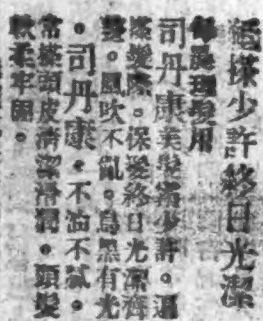 稍搽少許終日光潔
每晨理髮用
司丹康美髮霜少許。遍
搽髮際。保髮終日光潔齊
整。風吹不亂。烏黑有光
。司丹康。不油不膩。
常搽頭皮清潔滑潤。頭髮
軟柔牢固。